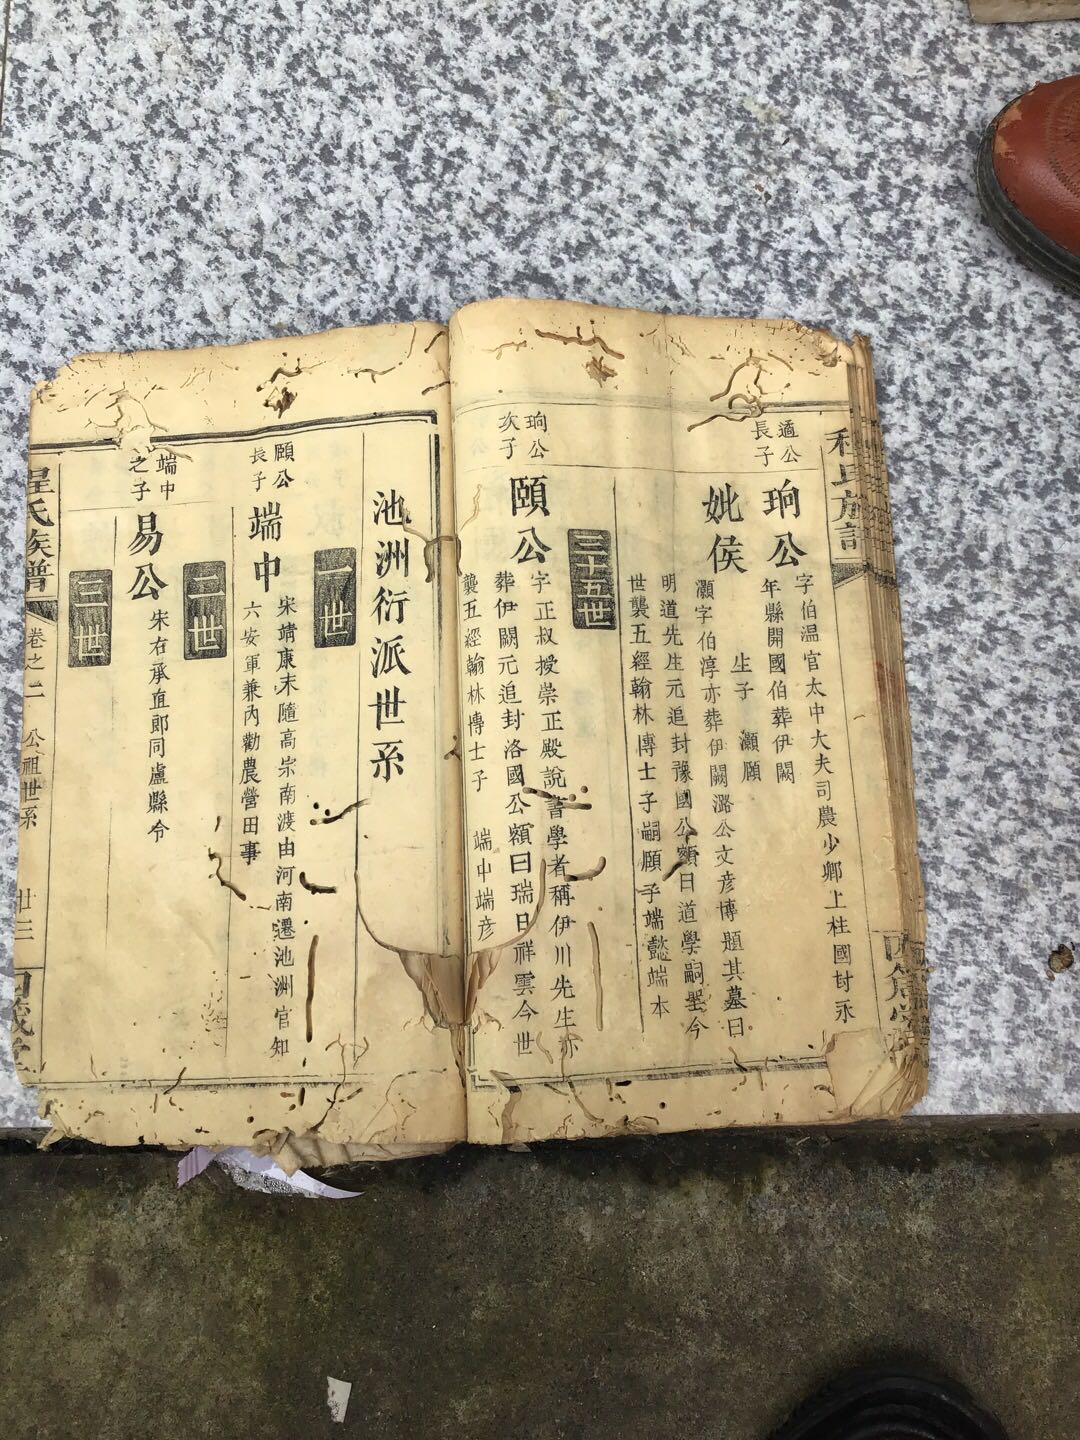 氏族譜
適公
長子
珦公
字伯温官太中大夫司農少卿上柱國封永
年縣開國伯葬伊闕
妣侯
生子 灝頤
灝字伯淳亦葬伊闕潞公文彦博題其墓曰
明道先生元追封豫國公額曰道學嗣聖今
世襲五經翰林博士子嗣願子端懿端本
三十五世
珦公
次子
頤公
字正叔授崇正殿説書學者稱伊川先生亦
葬伊闕元追封洛國公額曰瑞日祥雲今世
襲五經翰林博士子 端中端彦
池洲衍派世系
一世
頤公
長子
端中
宋靖康末隨高宗南渡由河南遷池洲官知
六安軍兼内勸農營田事
二世
端中
之子
易公
宋右承直郎同盧縣令
三世
程氏族譜
卷之二 公祖世系 廿三
四箴堂